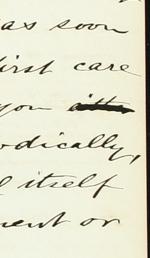 as soon
first care
you
odically,
l itself
ment or